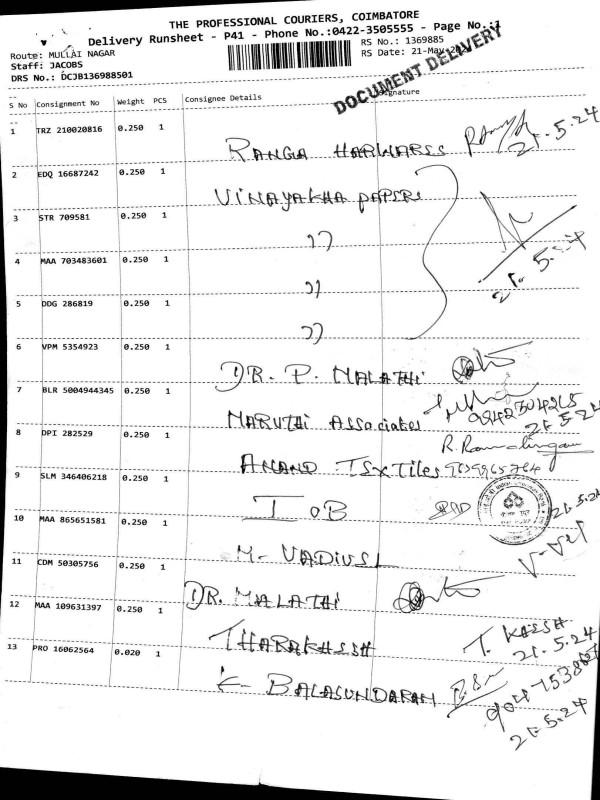 THE PROFESSIONAL COURIERS, COIMBATORE
Delivery Runsheet - P41 - Phone No.:0422-3505555 - Page No.:1
Route: MULLAI NAGAR
RS No.: 1369885
Staff: JACOBS
RS Date: 21-May-
DRS No.: DCJB136988501
DOCUMENT DELIVERY
S No Consignment No Weight PCS Consignee Details Signature
1 TRZ 210020816 0.250 1
RANGA HARWARES 21.5.24
2 EDQ 16687242 0.250 1
VINAYAKHA PAPERS
3 STR 709581 0.250 1
”
21. 5.24
4 MAA 703483601 0.250 1
”
5 DDG 286819 0.250 1
”
6 VPM 5354923 0.250 1
DR. P. MALATHI
7 BLR 5004944345 0.250 1
MARUTHI Associates 9842304265
21.5.24
8 DPI 282529 0.250 1
R. Ramalingam
ANAND TEXTiles
9 SLM 346406218 0.250 1
IOB 21.5.24
10 MAA 865651581 0.250 1
M. VADIVEL
11 CDM 50305756 0.250 1
DR. MALATHI
12 MAA 109631397 0.250 1
THARAKESSH T. KESSH
21.5.24
13 PRO 16062564 0.020 1
K BALASUNDARAM
21.5.24